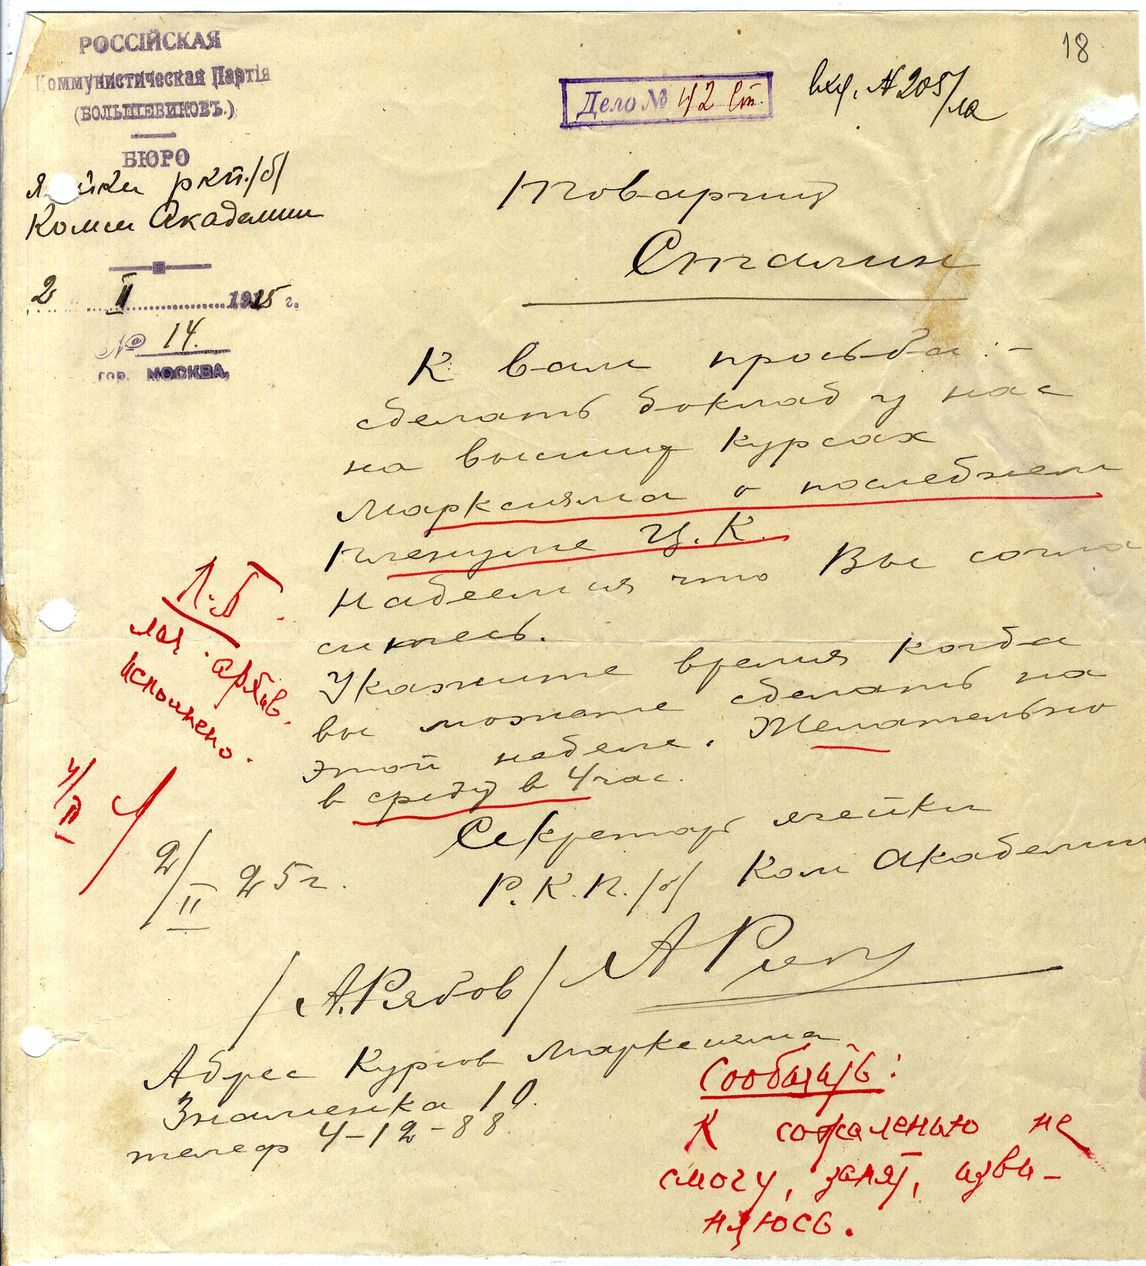 18
РОССІЙСКАЯ
Коммунистическая Партія
(БОЛЬШЕВИКОВЪ.)
БЮРО
Я йки ркп./б/
Ком Академии
2 II 1925 г.
№ 14.
гор. МОСКВА.
Дело № 42 Ст.
вхд. № 205/
Товарищ
Сталин
К вам просьба: -
сделать доклад у нас
на высших курсах
Марксизма о последнем
пленуме Ц.К.
Надеемся что Вы согла
ситесь.
Укажите время когда
вы можете сделать на
этой неделе. Желательно
в среду в 4 час.
Секретарь ячейки
Р.К.П./б/ Ком Академии
2/II 25 г.
/А.Рябов/ А Ряб
Адрес Курсов Марксизма
Знаменка 10.
телеф 4-12-88
архив.
Исполнено.
4/II
Сообщить:
К сожаленью не
смогу, занят, изви-
няюсь.